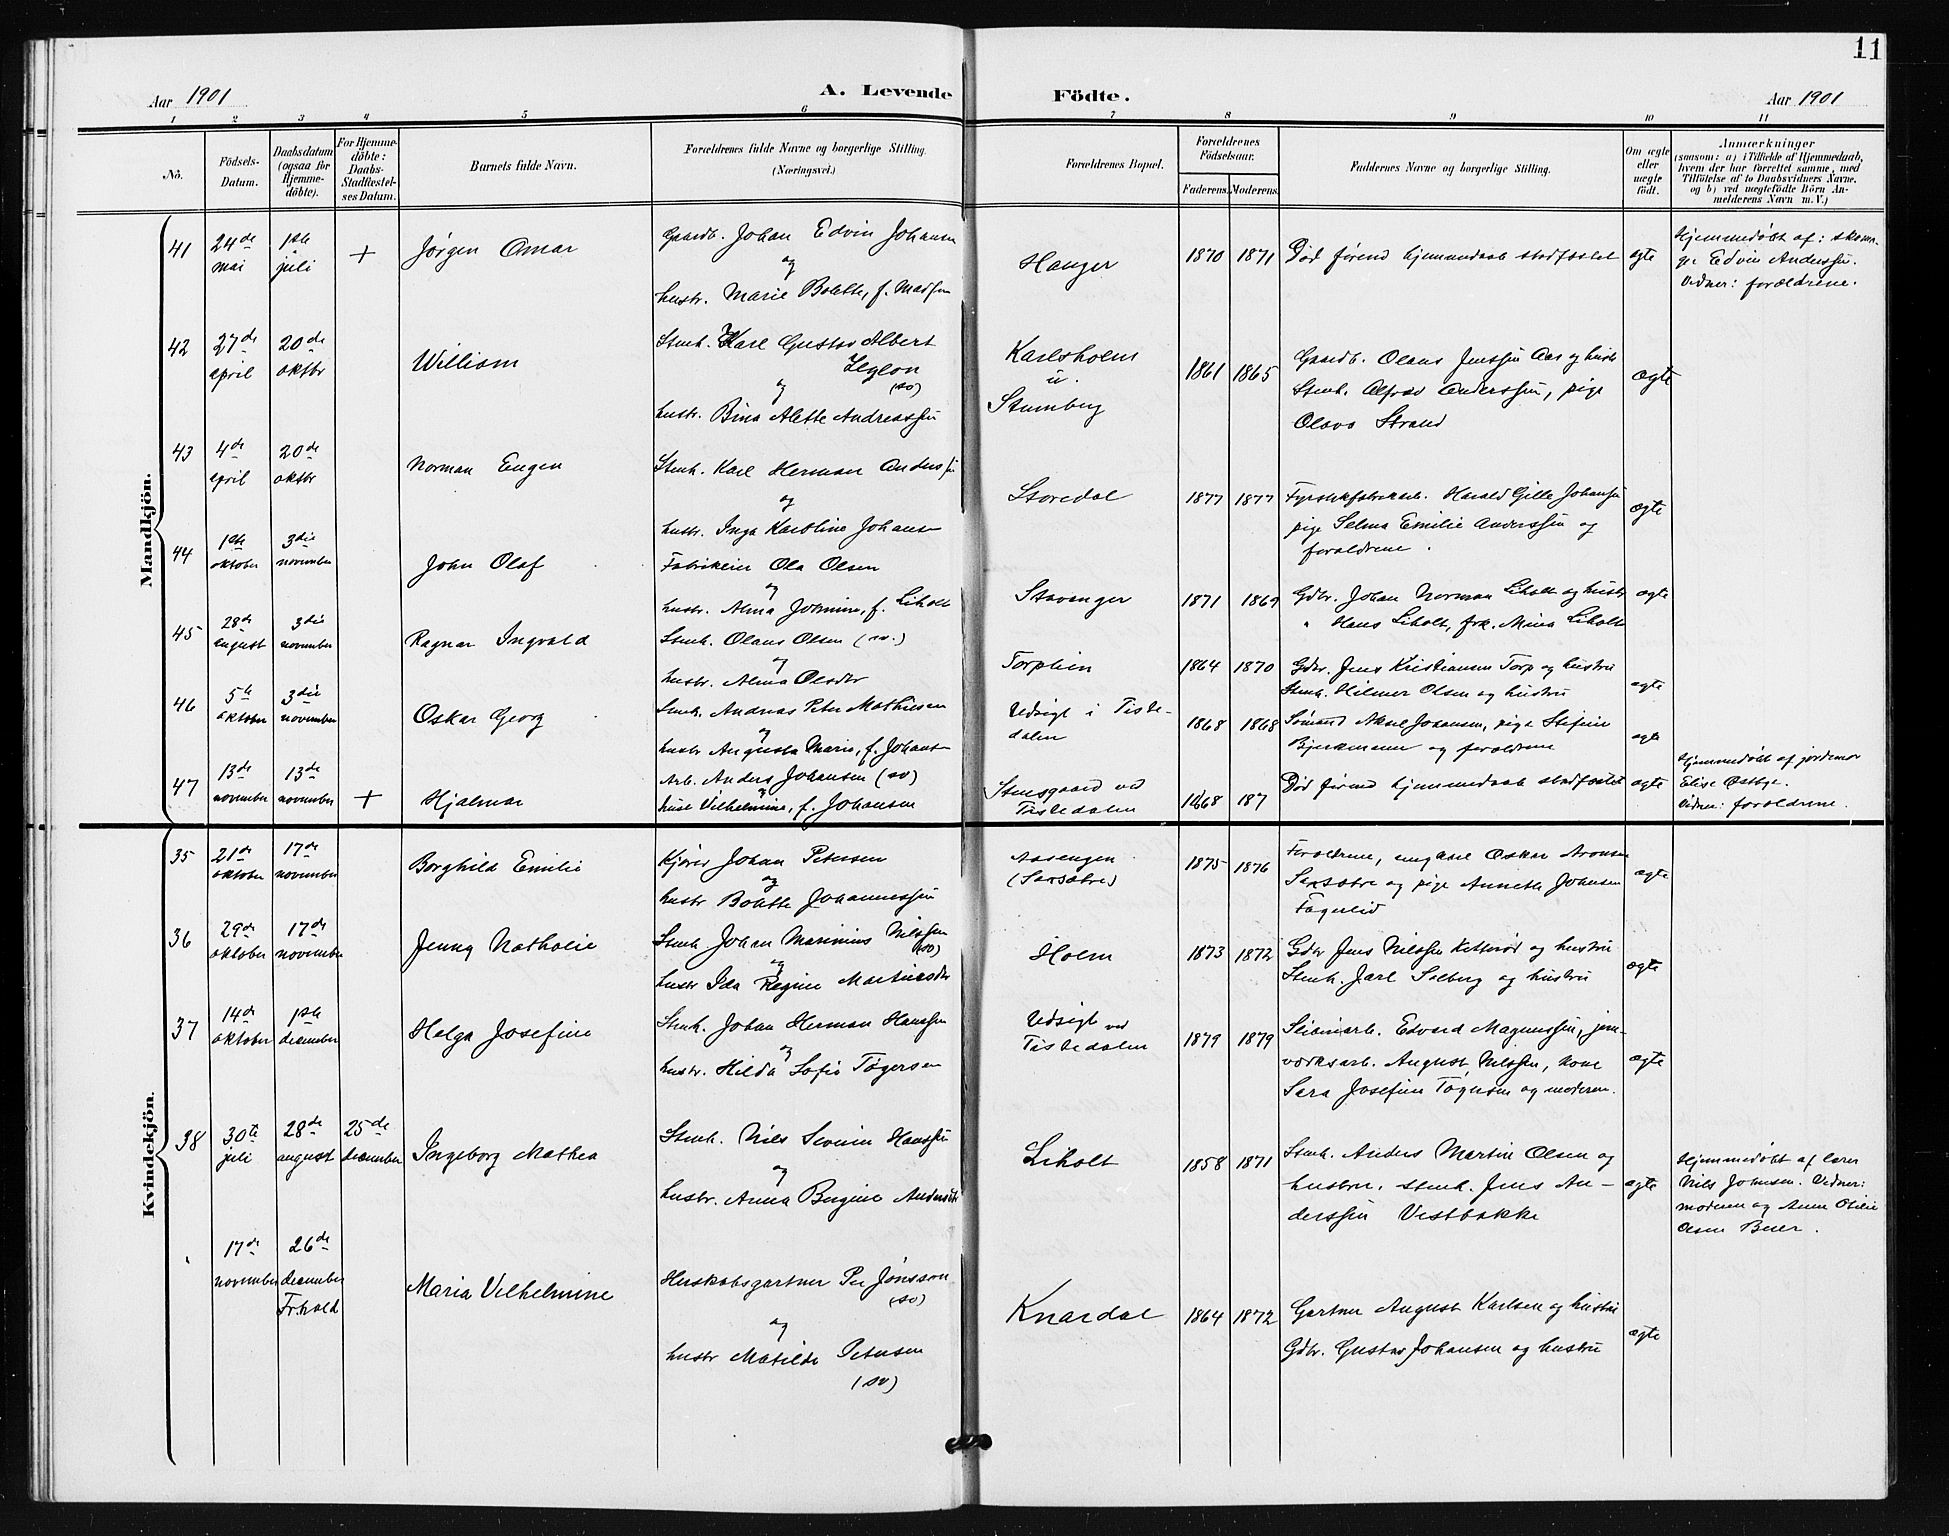 11
Aar 1901
A. Levende
Födte.
Aar 1901
1 2 3 4 5 6 7 8 9 10 11
Nô.
Födsels-
Datum.
Daabsdatum
(ogsaa for
Hjemme-
döbte).
For Hjemme-
döbte:
Daabs-
Stadfæstel-
ses Datum.
Barnets fulde Navn.
Forældrenes fulde Navne og borgerlige Stilling.
(Næringsvei.)
Forældrenes Bopæl.
Forældrenes
Födselsaar.
Faderens. Moderens.
Faddernes Navne og borgerlige Stilling.
Om ægte
eller
uægte
födt.
Anmærkninger
(saasom: a) i Tilfælde af Hjemmedaab,
hvem der har forrettet samme, med
Tilföielse af to Daabsvidners Navne.
og b) ved uægtefödte Börn An-
melderens Navn m. V.)
Mandkjön.
41
24de
mai
1ste
juli
+
Jørgen Omar
Gaardb. Johan Edvin Johansen
og
hustr. Marie Bolette, f. Madsen
Hanger
1870 1871
Död førend hjemmedaab stadfæstet
ægte
Hjemmedøbt af: skoma-
ger Edvin Anderssen.
Vidner: forældrene.
42
27de
april
20de
oktbr
William
Stenh. Karl Gustav Albert
(sv)
og
hustr. Bina Alette Andreassen
Karlsholm
u.
Stumberg
1861 1865
Gaardb. Olaus Jenssen Aas og hustr
Stenh. Alfred Anderssen, pige
Olava Strand
ægte
43
4de
april
20de
oktbr
Norman Eugen
Stenh. Karl Herman Anderssen
og
hustr. Inga Karoline Johansen
Storedal
1877 1877
Fyrstikfabrikarb. Harald Gille Johansen
pige Selma Emilie Anderssen og
forældrene.
ægte
44
1ste
oktober
3die
november
John Olaf
Fabrikeier Ola Olsen
og
hustr. Alma Jormine, f. Liholt
Stavanger
1871 1869
Gdbr. Johan Norman Liholt og hustr
" Hans Liholt, frk. Mina Liholt
ægte
45
28de
august
3die
november
Ragnar Ingvald
Stenh. Olaus Olsen (sv.)
og
hustr. Alma Olsdtr
Torplien
1864 1870
Gdbr. Jens Kristiansen Torp og hustru
Stenh. Hilmer Olsen og hustru
ægte
46
5te
oktober
3die
november
Oskar Georg
Stenh. Andreas Peter Mathiesen
og
hustr Augusta Marie, f. Johansen
Udsigt i Tiste-
dalen
1868 1868
Sømand Aksel Johansen, pige Stefine
Bjerkmann og forældrene
ægte
47
13de
november
13de
november
+
Hjalmar
Arb. Anders Johansen (sv)
og
Vilhelmine, f. Johansen
Stensgaard ved
Tistedalen
1868 187
Död førend hjemmedaab stadfæstet
ægte
Hjemmedøbt af jordemor
Elise Østbye.
Vidner: forældrene.
Kvindekjön.
35
21de
oktober
17de
november
Borghild Emilie
Kjører Johan Petersen
og
hustr Bolette Johannessen
Aasengen
(Saxsøtre)
1875 1876
Forældrene, ungkarl Oskar Aronsen
Saxsøtre og pige Annette Johansen
Fagerlid
ægte
36
29de
oktober
17de
november
Jenny Nathalie
Stenh Johan Marinius Nilssen
(sv)
og
hustr Ida Regine Martinsdtr
Holm
1873 1872
Gdbr Jens Nilssen Ketterød og hustru
Stenh. Jarl Solberg og hustru
ægte
37
14de
oktober
1ste
december
Helga Josefine
Stenh. Johan Herman Hanssen
og
hustr. Hilda Sofie Tøgersen
Udsigt ved
Tistedalen
1879 1879
Sliberiarb. Edvard Magnussen, jern-
værksarb. August Nilssen, kone
Sara Josefine Tøgersen og moderen.
ægte
38
30te
juli
28de
august
25de
december
Ingeborg Mathea
Stenh. Nils Severin Hanssen
og
hustr. Anna Bergine Andersdtr
Liholt
1858 1871
Stenh. Anders Martin Olsen og
hustru. Stenh. Jens An-
derssen Vestbakke
ægte
Hjemmedøbt af lærer
Nils Johnsen. Vidner:
moderen og Anne Otilie
Olsen Beier.
17de
november
26de
december
Fr.hald
Maria Vilhelmine
Herskabsgartner Per Jönsson
(sv)
og
hustr Matilde Petersen
(sv)
Knardal
1864 1872
Gartner August Karlsen og hustru
Gdbr. Gustav Johansen og hustru
ægte